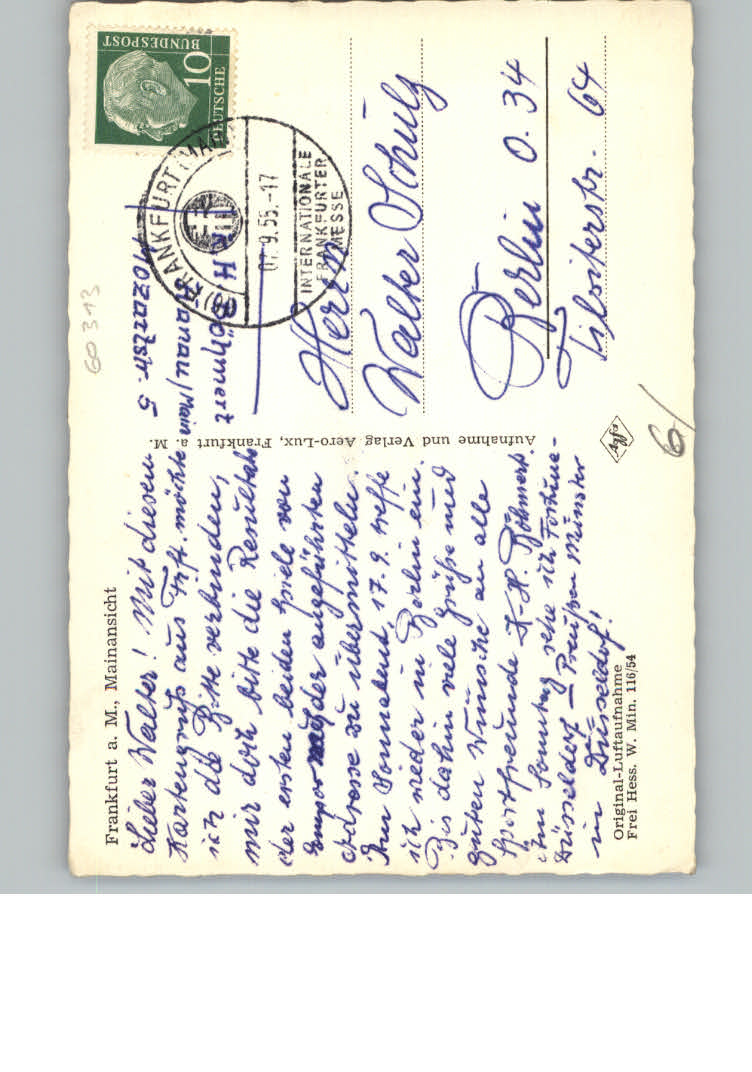 Frankfurt a. M., Mainansicht
Lieber Walter! Mit diesem
Kartengruß aus Frft. möchte
ich die Bitte verbinden,
mir doch bitte die Resultate
der ersten beiden Spiele von
Empor der angeführten
Adresse zu übermitteln.
Am Sonnabend, 17. 9. treffe
ich wieder in Berlin ein.
Bis dahin viele Grüße und
guten Wünsche an alle
Sportfreunde K-H. Böhmert.
Am Sonntag sehe ich Fortuna-
Düsseldorf – Preußen Münster
in Düsseldorf!
Original-Luftaufnahme
Frei Hess. W. Min. 116/54
Aufnahme und Verlag Aero-Lux, Frankfurt a. M.
60 313
Mozartstr. 5
Hanau/Main
K. H. Böhmert
DEUTSCHE
BUNDESPOST
10
(16) FRANKFURT (MAIN)
07.9.55.-17
INTERNATIONALE
FRANKFURTER
MESSE
Herrn
Walter Schulz
Berlin O. 34
Tilsiterstr. 64
Agfa
6/